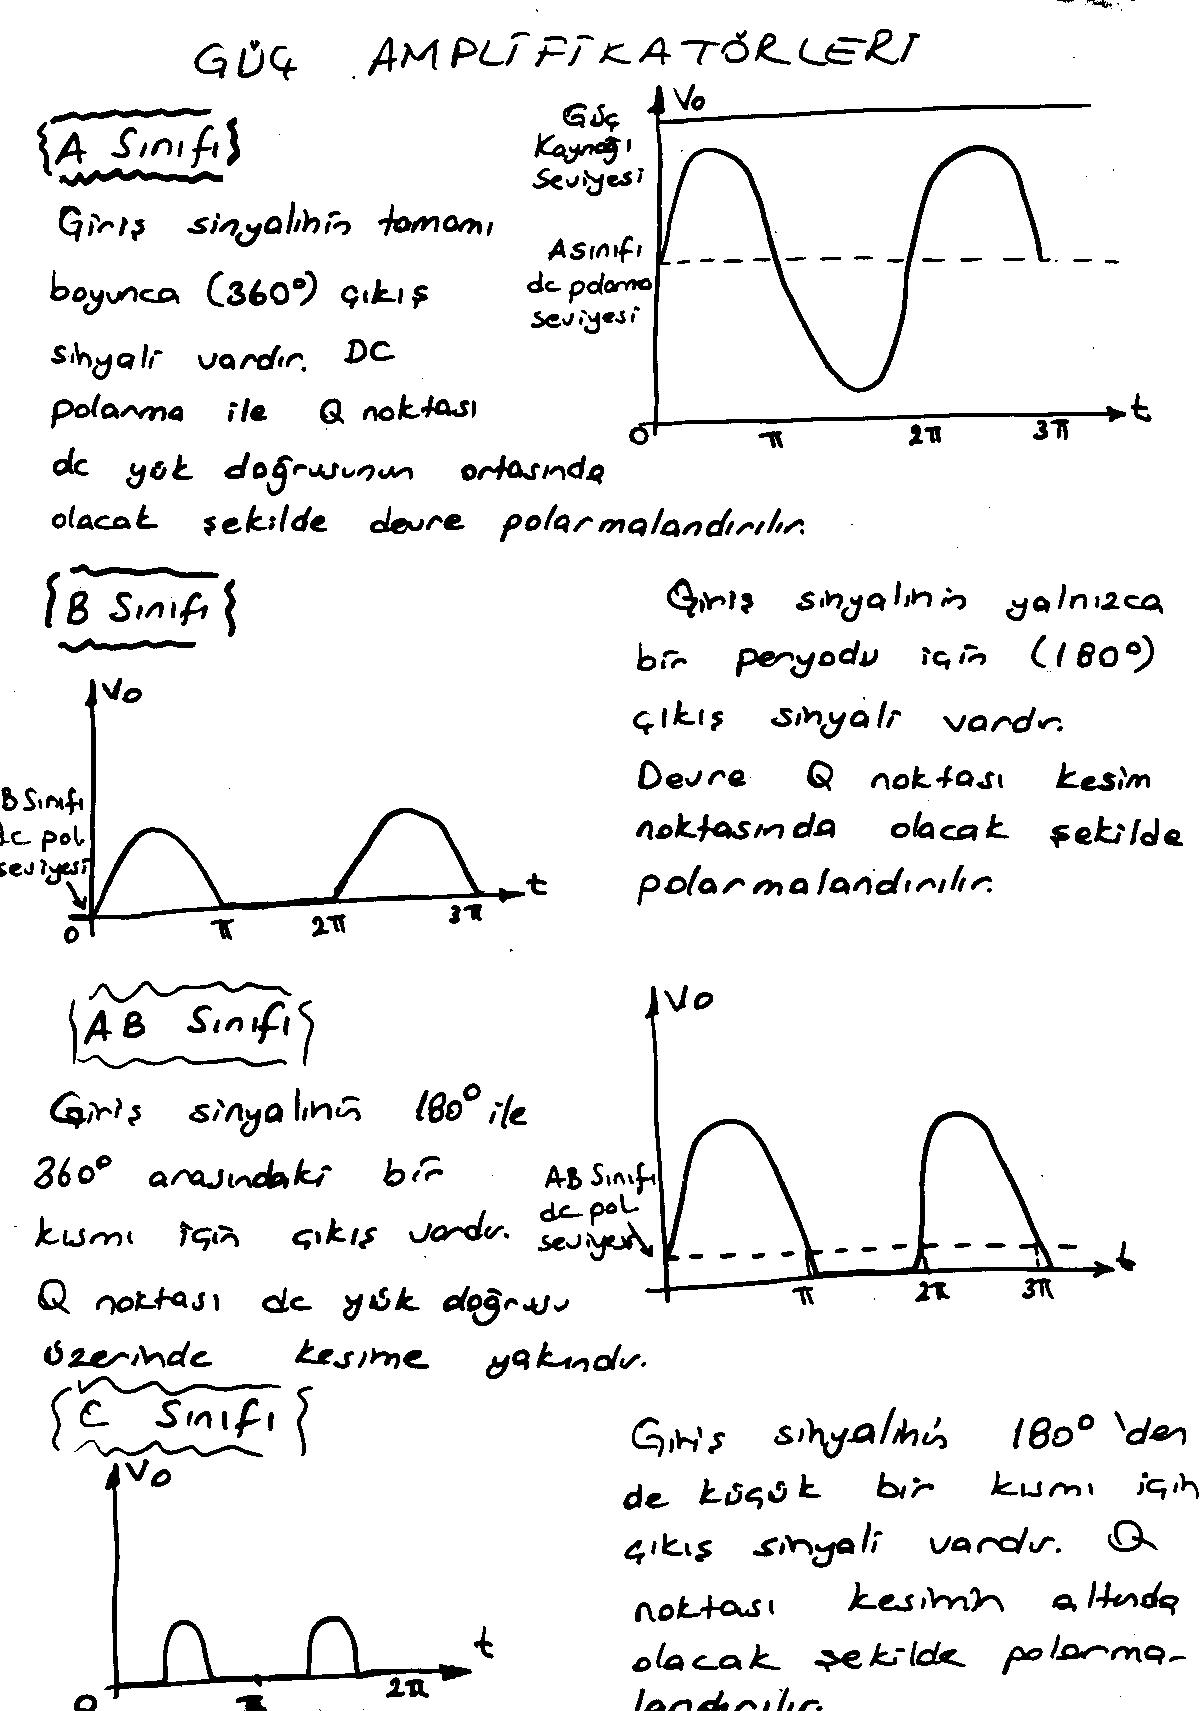 GÜÇ AMPLİFİKATÖRLERİ
A Sınıfı
Giriş sinyalinin tamamı
boyunca (360°) çıkış
sinyali vardır. DC
polarma ile Q noktası
dc yük doğrusunun ortasında
olacak şekilde devre polarmalandırılır.
Vo
Güç
Kaynağı
Seviyesi
A sınıfı
dc polarma
seviyesi
0
π
2π
3π
t
B Sınıfı
Vo
B Sınıfı
dc pol.
seviyesi
0
π
2π
3π
t
Giriş sinyalinin yalnızca
bir peryodu için (180°)
çıkış sinyali vardır.
Devre Q noktası kesim
noktasında olacak şekilde
polarmalandırılır.
AB Sınıfı
Giriş sinyalinin 180° ile
360° arasındaki bir
kısmı için çıkış vardır.
Q noktası dc yük doğrusu
üzerinde kesime yakındır.
Vo
AB Sınıfı
dc pol.
seviyesi
π
2π
3π
t
C Sınıfı
Vo
0
π
2π
t
Giriş sinyalinin 180° 'den
de küçük bir kısmı için
çıkış sinyali vardır. Q
noktası kesimin altında
olacak şekilde polarma-
landırılır.